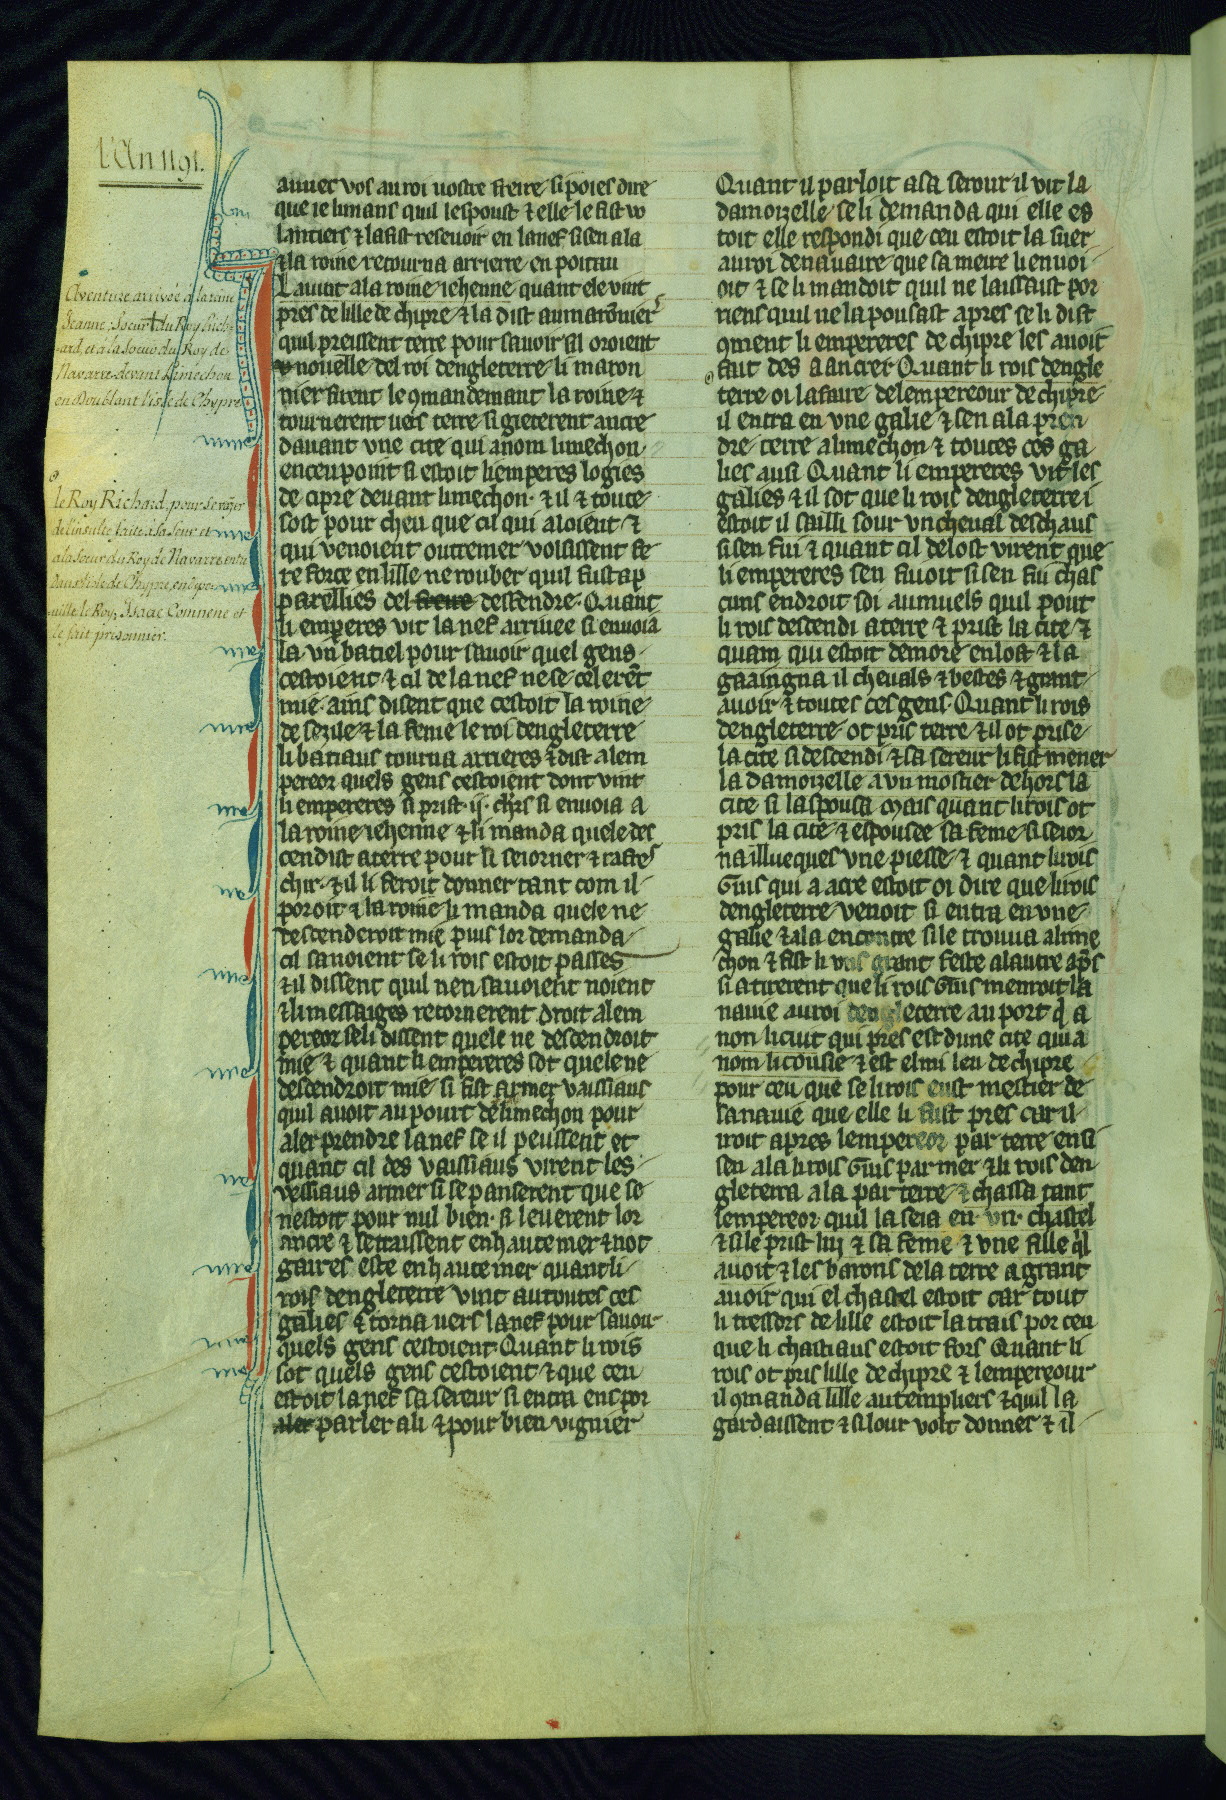 l'An 1191.
Aventure arrivée a la reine
Jeanne, Soeur du Roy Rich-
-ard, et à la Soeur du Roy de
Navarre devant Limechon
en Doublant l'isle de Chypre
le Roy Richard, pour se vanger
de l'insulte faite à sa Seur et
a la Soeur du Roy de Navarre entre
dans l'isle de Chypre, en
le Roy, Isaac Comnene et
le fait prisonnier.
auuec vos au roi uostre freire si poies dire
que ie li mans quil lespoust ⁊ elle le fist vo
lantiers ⁊ la fist reseuoir en la nef si sen ala
⁊ la roine retourna arrierre en poitau
Lauint a la roine iehenne quant ele vint
pres de lille de chipre ⁊ la dist au maronnier
quil preissent terre pour sauoir sil oroient
nouuelle del roi dengleterre li maron
nier firent le ꝯmandemant la roine ⁊
tournerent uers terre si gieterent ancre
dauant vne cite qui a nom limechon
en ceu point si estoit li emperes logies
de cipre deuant limechon ⁊ il ⁊ toute
sost pour cheu que cil qui aloient ⁊
qui venoient outremer voisissent fe
re force en lille ne rouber quil fust ap
parellies del descendre Quant
li emperes vit la nef arriuee si enuoia
la vn batiel pour sauoir quel gens
cestoient ⁊ cil de la nef ne se celerent
mie ains disent que cestoit la roine
de sezile ⁊ la feme le roi dengleterre
li batiaus tourna arrieres ⁊ dist a lem
pereor quels gens cestoient dont vint
li empereres si prist ·ij· chrs si enuoia a
la roine iehenne ⁊ li manda quele des
cendist a terre pour li seiorner ⁊ rafres
chir ⁊ il li feroit donner tant com il
poroit ⁊ la roine li manda quele ne
descenderoit mie puis lor demanda
cil sauoient se li rois estoit passes
⁊ il dissent quil nen sauoient noient
⁊ li messaiges retornerent droit a lem
pereor se li dissent quele ne descendroit
mie ⁊ quant li empereres sot quele ne
descendroit mie si fist armer vaissiaus
quil auoit au pourt de limechon pour
aler prendre la nef se il peussent et
quant cil des vaissiaus virent les
vessiaus armer si se panserent que se
nestoit pour nul bien si leuerent lor
ancre ⁊ se traissent en haute mer ⁊ not
gaires este en haute mer quant li
rois dengleterre vint a toutes ces
galies ⁊ torna uers la nef pour sauoir
quels gens cestoient Quant li rois
sot quels gens cestoient ⁊ que ceu
estoit la nef sa sereur si entra ens por
parler a li ⁊ pour bien vignier
Quant il parloit a sa serour il vit la
damoizelle se li demanda qui elle es
toit elle respondi que ceu estoit la suer
au roi de nauaire que sa meire li enuoi
oit ⁊ se li mandoit quil ne laissast por
riens quil ne la pousast apres se li dist
ꝯment li empereres de chipre les auoit
fait des aancrer Quant li rois dengle
terre oi la faire de lempereour de chipre
il entra en vne galie ⁊ sen ala pren
dre terre a limechon ⁊ toutes ces ga
lies ausi Quant li empereres vit les
galies ⁊ il sot que li rois dengleterre i
estoit il sailli sour vn cheual deschaus
si sen fui ⁊ quant cil de lost virent que
li empereres sen fuioit si sen fui chas
cuns endroit soi au muels quil pout
li rois descendi a terre ⁊ prist la cite ⁊
quam qui estoit demore en lost ⁊ la
gaaingna il cheuals ⁊ bestes ⁊ grant
auoir ⁊ toutes ces gens Quant li rois
dengleterre ot pris terre ⁊ il ot prise
la cite si descendi ⁊ sa sereur li fist mener
la damoizelle a vn mostier dehors la
cite si la spousa Mais quant li rois ot
pris la cite ⁊ espousee sa feme si seior
na illueques vne piesse ⁊ quant li rois
Guis qui a acre estoit oi dire que li rois
dengleterre venoit si entra en vne
galie ⁊ ala encontre si le trouua a lime
chon ⁊ fist li rois grant feste a lautre aps
si atirerent que li rois Guis menroit la
nauie au roi dengleterre au port q a
non liciut qui pres est dune cite qui a
nom licousie ⁊ est el mi leu de chipre
pour ceu que se li rois eust mestier de
sa nauie que elle li fust pres car il
iroit apres lempereor par terre ensi
sen ala li rois Guis par mer ⁊ li rois den
gleterra ala par terre ⁊ chassa tant
lempereor quil laseia en vn chastel
⁊ si le prist lui ⁊ sa feme ⁊ vne fille ql
auoit ⁊ les barons de la terre a grant
auoir qui el chastel estoit car tout
li tressors de lille estoit la trais por ceu
que li chastiaus estoit fors Quant li
rois ot pris lille de chipre ⁊ lempereour
il ꝯmanda lille au templiers ⁊ quil la
gardaissent ⁊ si lour volt donner ⁊ il